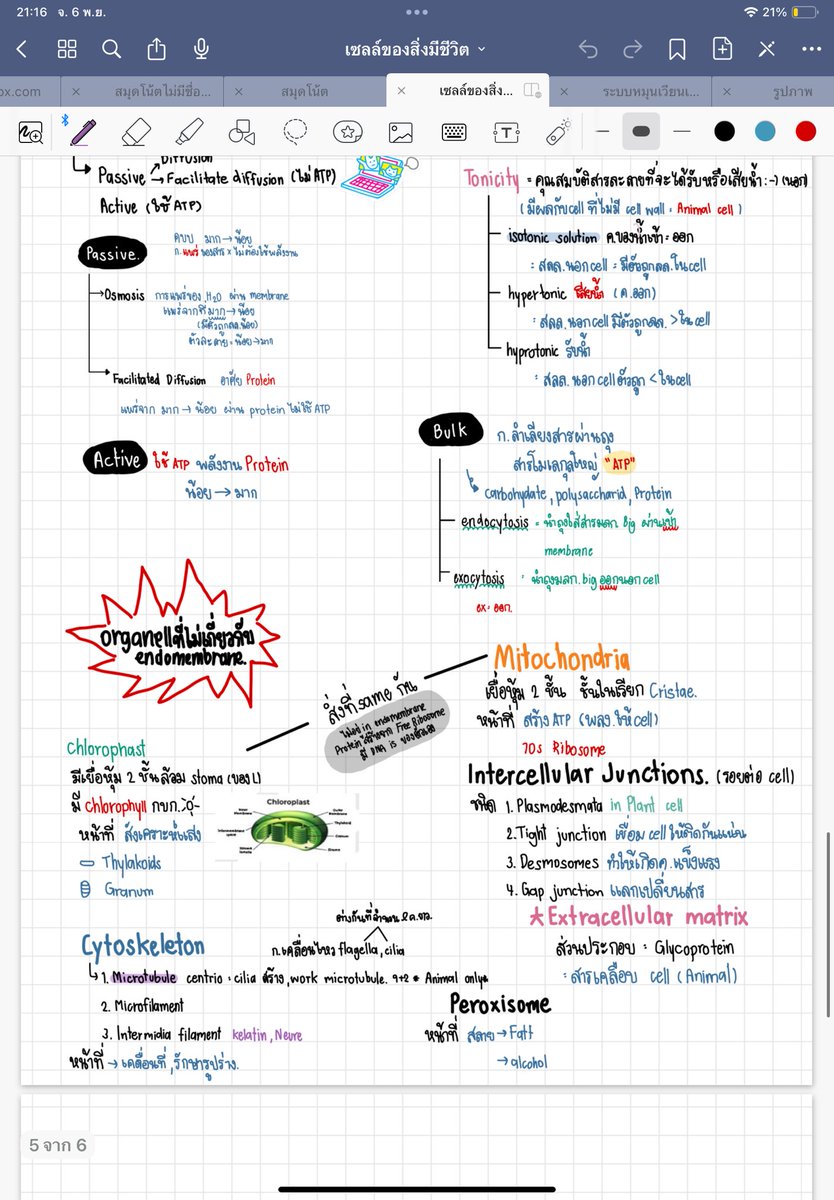 21:16 จ. 6 พ.ย.
21%
เซลล์ของสิ่งมีชีวิต
ox.com
สมุดโน้ตไม่มีชื่อ...
สมุดโน้ต
เซลล์ของสิ่ง...
ระบบหมุนเวียนเ...
รูปภาพ
Diffusion
Passive → Facilitate diffusion (ไม่ ATP)
Active (ใช้ ATP)
Passive.
มาก → น้อย
ก. แพร่ ของสาร × ไม่ต้องใช้พลังงาน
Osmosis การแพร่ของ H₂O ผ่าน membrane
แพร่จากที่มาก → น้อย
(มีตัวถูกลล.น้อย)
ตัวละลาย = น้อย → มาก
Facilitated Diffusion อาศัย Protein
แพร่จาก มาก → น้อย ผ่าน protein ไม่ใช้ ATP
Active ใช้ ATP พลังงาน Protein
น้อย → มาก
Tonicity = คุณสมบัติสารละลายที่จะได้รับหรือเสียน้ำ :-) (นอก)
(มีผลกับ cell ที่ไม่มี cell wall = Animal cell)
isotonic solution ค.ของน้ำเข้า = ออก
= สลล. นอก cell = มีตัวถูกลล. ใน cell
hypertonic เสียน้ำ (ค.ออก)
= สลล. นอก cell มีตัวถูกลล. > ใน cell
hyprotonic รับน้ำ
= สลล. นอก cell ตัวถูก < ใน cell
Bulk ก. ลำเลียงสารผ่านถุง
สารโมเลกุลใหญ่ "ATP"
carbohydate, polysaccharid, Protein
endocytosis = นำถุงใส่สารมลก. Big ผ่านเข้า
membrane
exocytosis = นำถุงมลก. big ออกนอก cell
ex = ออก.
organellที่ไม่เกี่ยวกับ
endomembrane.
สิ่งที่ same กัน
ไม่อยู่ in endomembrane
Protein ได้รับจาก Free Ribosome
มี DNA is ของตัวเอง
Mitochondria
เยื่อหุ้ม 2 ชั้น ชั้นในเรียก Cristae.
หน้าที่ สร้าง ATP (พลง.ให้ cell)
70s Ribosome
Chlorophast
มีเยื่อหุ้ม 2 ชั้นล้อม stoma (ของ L)
มี chlorophyll
หน้าที่ สังเคราะห์แสง
Thylakoids
Granum
Chloroplast
Intercellular Junctions. (รอยต่อ cell)
ชนิด 1. Plasmodesmata in Plant cell
2. Tight junction เชื่อม cell ให้ติดกันแน่น
3. Desmosomes ทำให้เกิดค. แข็งแรง
4. Gap junction แลกเปลี่ยนสาร
★ Extracellular matrix
ส่วนประกอบ = Glycoprotein
= สารเคลือบ cell (Animal)
Cytoskeleton
ก. เคลื่อนไหว flagella, cilia
1. Microtubule centrio = cilia สร้าง, work microtubule. 9+2 * Animal only*
2. Microfilament
3. Intermidia filament kelatin, Neure
หน้าที่ → เคลื่อนที่, รักษารูปร่าง.
Peroxisome
หน้าที่ สลาย → Fatt
→ alcohol
5 จาก 6